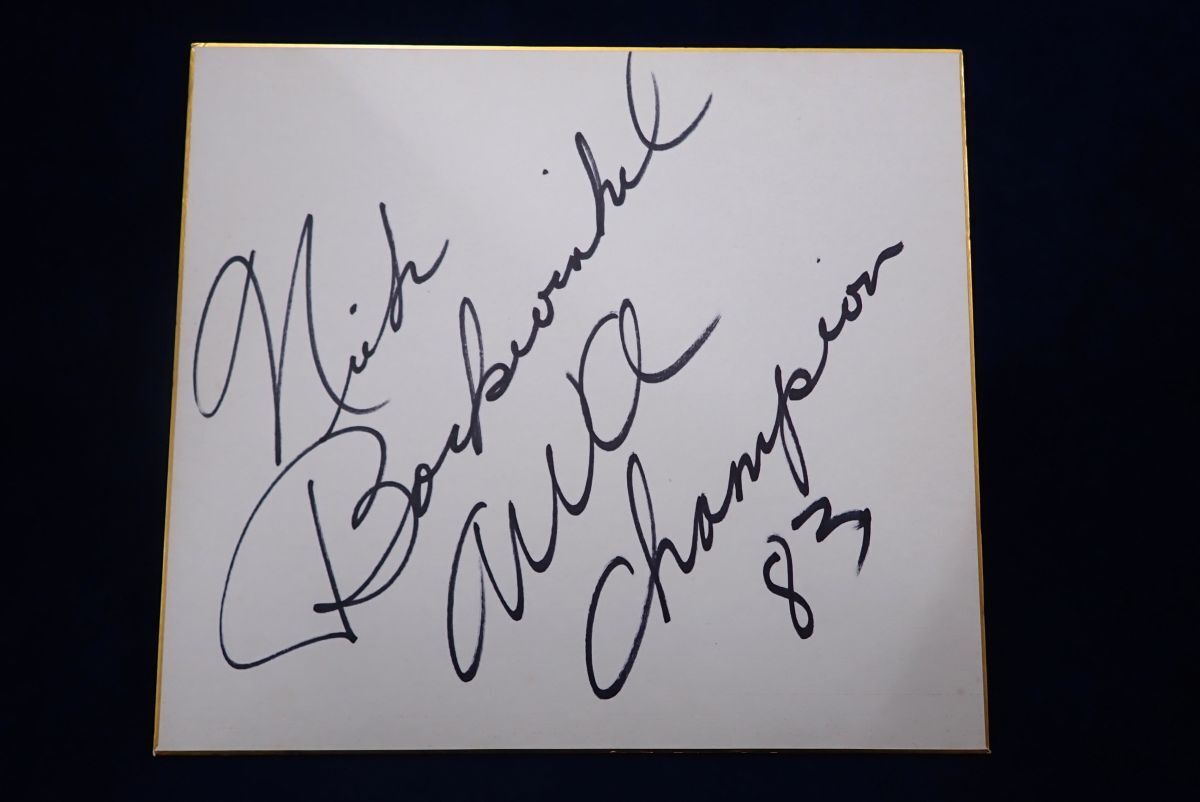 Nick
Bockwinkel
AWA
Champion
83